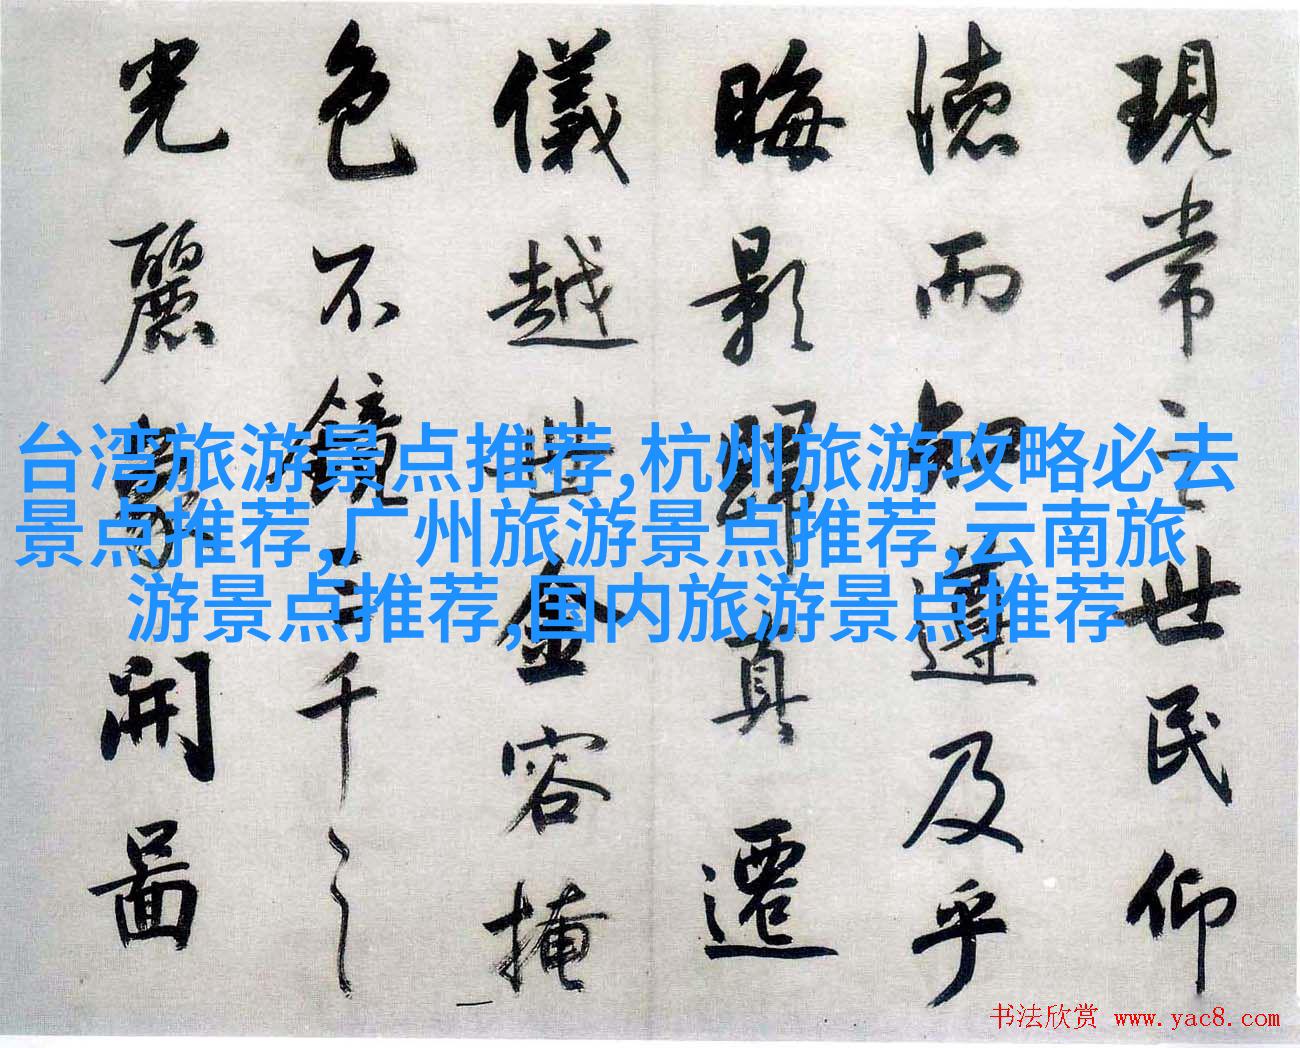 現常之世民仰
德而知遵及乎
晦影歸真遷
儀越世金容掩
色不鏡三千之
光麗象開圖
台湾旅游景点推荐,杭州旅游攻略必去
景点推荐,广州旅游景点推荐,云南旅
游景点推荐,国内旅游景点推荐
书法欣赏 www.yac8.com